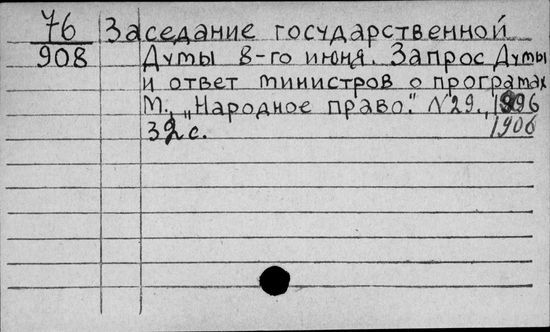 76 Заседание государственной
908 Думы 8-го июня. Запрос Думы
и ответ министров о програмах
М., "Народное право." N29., 1906
32 с. 1906